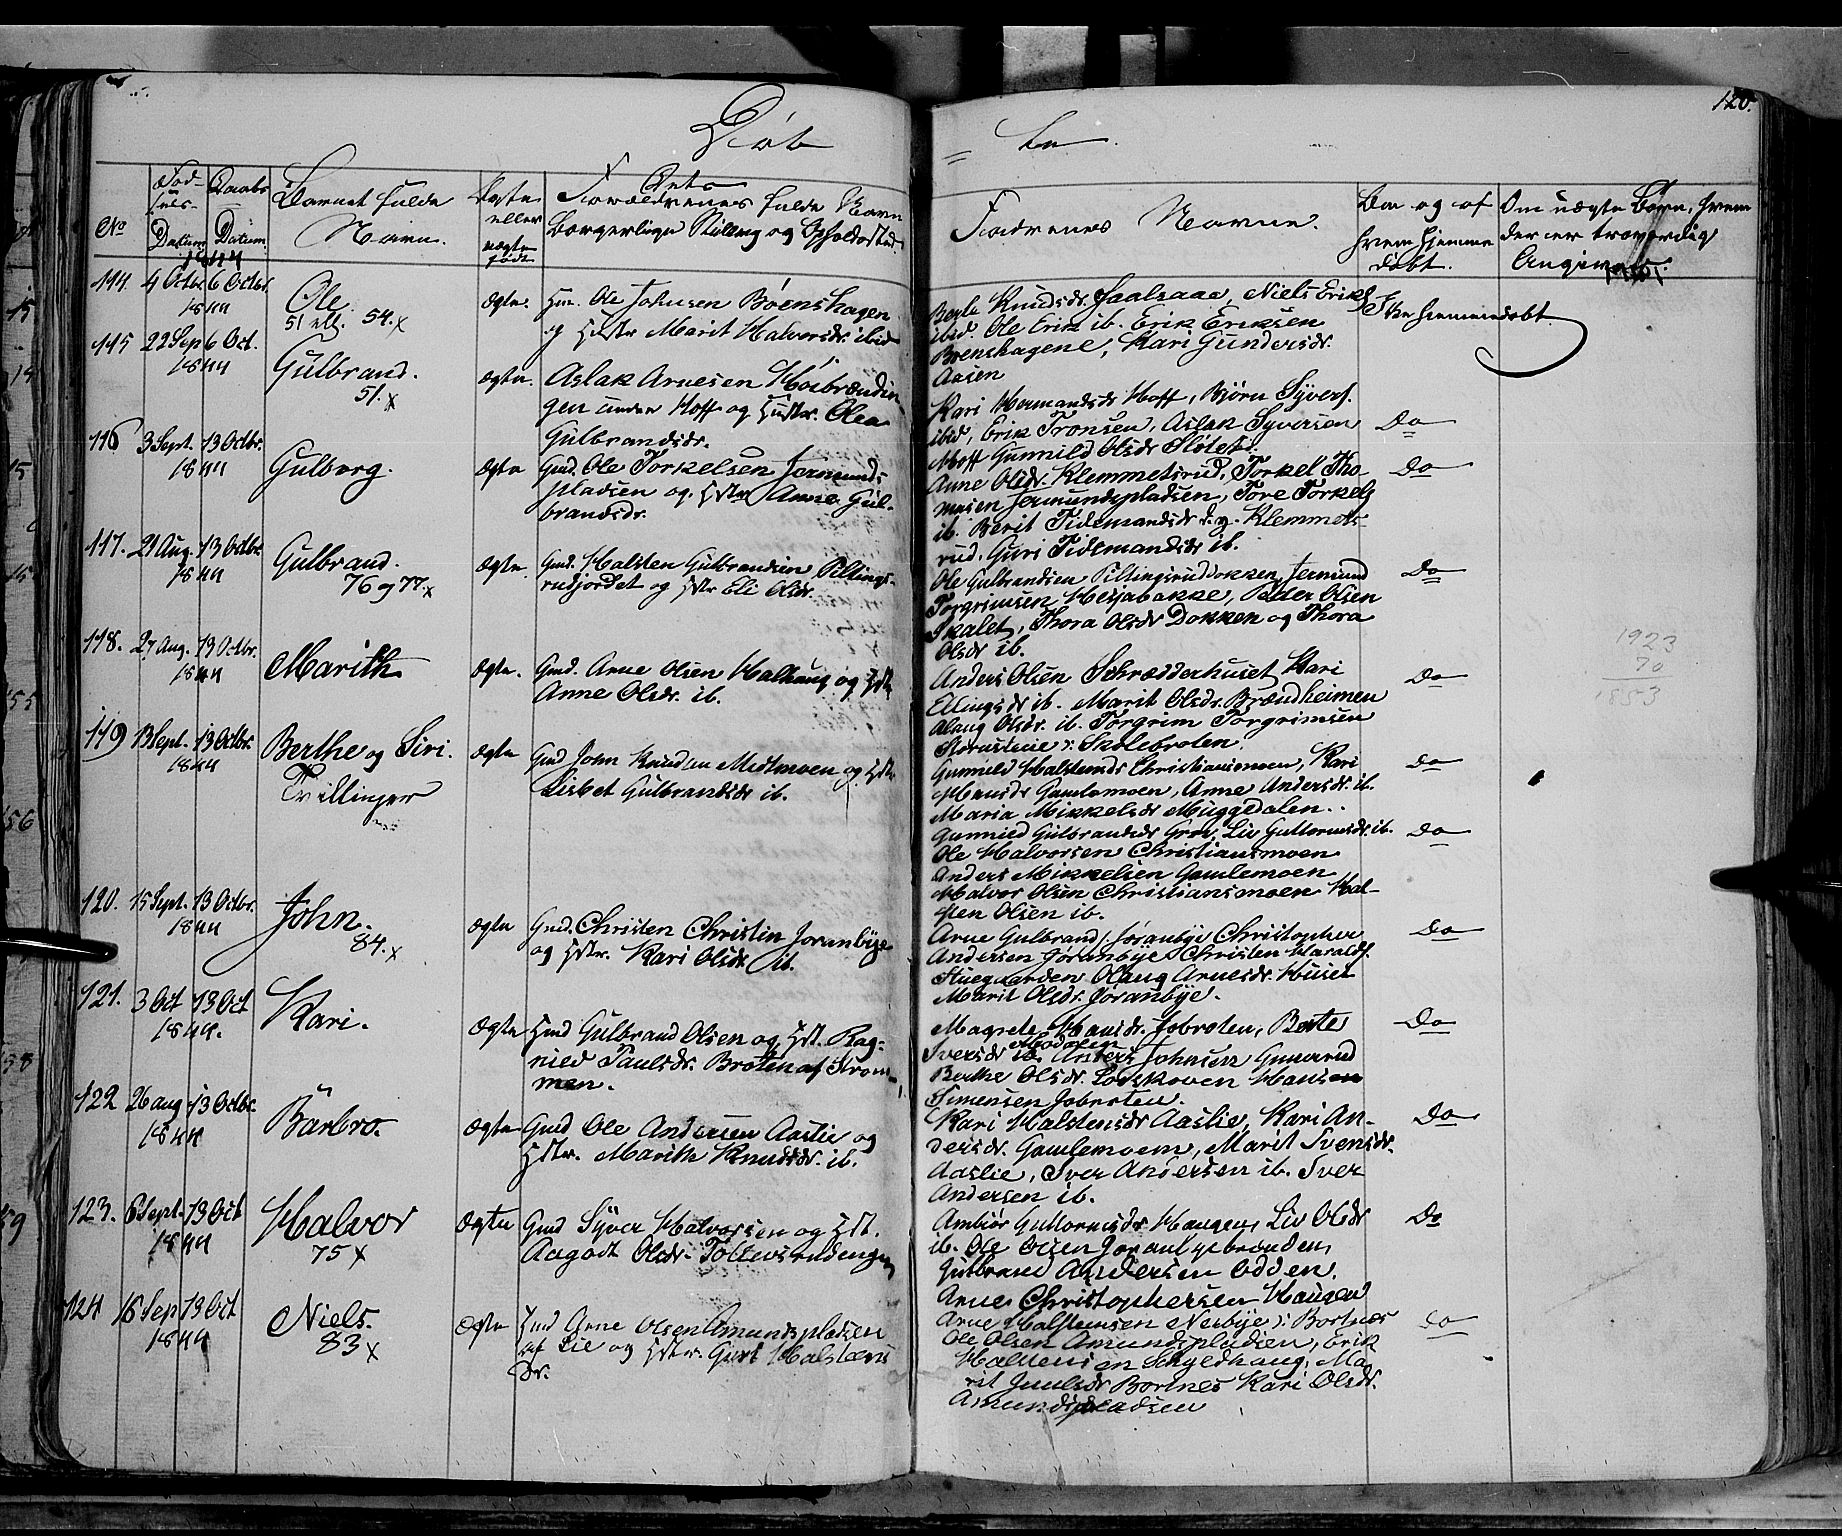 120.
Døb
= te
No
Fød-
sels-
Datum
Daabs
Datum.
1844
Barnets fulde
Navn.
Ægte
eller
uægte
født
Forældrenes fulde Navn
Borgerlige Stilling og Opholdssted.
Faddernes Navne.
Om og af
hvem hjemme
døbt.
Om uægte Børn, hvem
der er troværdig
Angiver
114 4 Octbr. 6 Octbr.
1844
Ole
51 ell. 54. x
Ægte.
Hmd. Ole Johnsen Brenshagen
og Hustr Marit Halvorsdr. ibid
Berte Knudsdr. Niels Eriks
ibid. Ole Erik ib. Erik Eriksen
Brenshagene, Kari Gundersdr.
Aasen
Ikke hjemmedøbt
115 22 Sep 6 Oct.
1844
Gulbrand.
51. x
Ægte.
Aslak Arnesen Høibrændin
gen under Hoff og Hustr. Olea
Gulbrandsdr.
Kari Hermandsdr Hoff, Bjørn Syvers.
ibid, Erik Tronsen, Aslak Syversen
Hoff Gunnild Olsdr Slötet
Do
116 3 Sept. 13 Octbr.
1844
Gulborg.
Ægte
Gmd. Ole Torkelsen Jermunds-
pladsen og Hstr Anne Gul-
brandsdr.
Anne Olsdr. Klemmetsrud, Torkel Tho
masen Jermundspladsen, Tore Torkels
ib. Berit Tidemandsdr Klemmets-
rud, Guri Tidemandsdr ib.
Do
117. 21 Aug. 13 Octbr.
1844
Gulbrand.
76 og 77. x
Ægte.
Gmd. Halsten Gulbrandsen Piltings-
rudjordet og Hstr Eli Olsdr.
Ole Gulbrandsen Piltingsruddokken, Jermund
Torgrimsen Hesjabakke, Peder Olsen
Skalet, Thora Olsdr Dokken og Thora
Olsdr ib.
Do
118. 27 Aug. 13 Octbr.
1844
Marith
Ægte.
Gmd. Arne Olsen Halhaug og Hstr
Anne Olsdr. ib.
Anders Olsen Schrædderhuset Kari
Ellingsdr ib. Marit Olsdr. Brændheimen
Olaug Olsdr. ib. Torgrim Torgrimsen
Skolebroten.
Do
1923
70
1853
119 13 Sept. 13 Octbr.
1844
Berthe og Siri.
Tvillinger
Ægte
Gmd John Knudsen Medtmoen og Hstr.
Lisbet Gulbrandsdr ib.
Gunnild Halstensdr Christiansmoen, Kari
Hansdr Gamlemoen, Anne Andersdr. ib.
Maria Mikkelsdr Muggedalen.
Gunnild Gulbrandsdr Grov, Liv Guttormsdr. ib.
Ole Halvorsen Christiansmoen
Anders Mikkelsen Gamlemoen
Halvor Olsen Christiansmoen Hal-
sten Olsen ib.
Do
Do
120. 15 Sept. 13 Octbr.
1844
John.
84. x
Ægte
Gmd. Christen Christin Joranbye
og Hstr. Kari Olsdr. ib.
Arne Gulbrands Joranbye Christopher
Andersen Joranbye Christen Haralds.
Stuegaarden Olaug Arnesdr. Huset
Marit Olsdr. Joranbye.
Do
121. 3 Oct 13 Oct
1844.
Kari.
Ægte
Hmd Gulbrand Olsen og Hst. Rag-
nild Paulsdr. Broten af Strom-
men.
Magrete Hansdr. Jobroten, Berte
Iversdr ib. Anders Johnsen Gunnerud
Berthe Olsdr. Lodskoven Hansen
Simensen Jobroten.
Do
122 26 aug 13 Octbr.
1844
Barbro.
Ægte
Gmd Ole Andersen Aaslie og
Hstr. Marith Knudsdr. ib.
Kari Halstensdr Aaslie, Kari An-
dersdr. Gamlemoen, Marit Svensdr.
Aaslie, Iver Andersen ib. Iver
Andersen ib.
Do
123. 6 Sept. 13 Oct
1844
Halvor
75 x
Ægte
Gmd Syver Halvorsen og Hst.
Aagodt Olsdr. Tollevsrudengen
Ambiør Guttormsdr. Haugen, Liv Olsdr
ib. Ole Olsen Joranbyebraaden,
Gulbrand Andersen Odden.
Arne Christophersen Haugen
Do
124 16 Sep 13 Oct
1844
Niels.
83 x
Ægte
Hmd Arne Olsen Amundspladsen
af Lie og Hstr. Guri Halstens
Dr.
Arne Halstensen Neibye i Bortnes
Ole Olsen Amundspladsen, Erik
Halstensen Skjedhaug, Ma
rit Juulsdr Bortnes Kari Olsdr.
Amundspladsen
Do